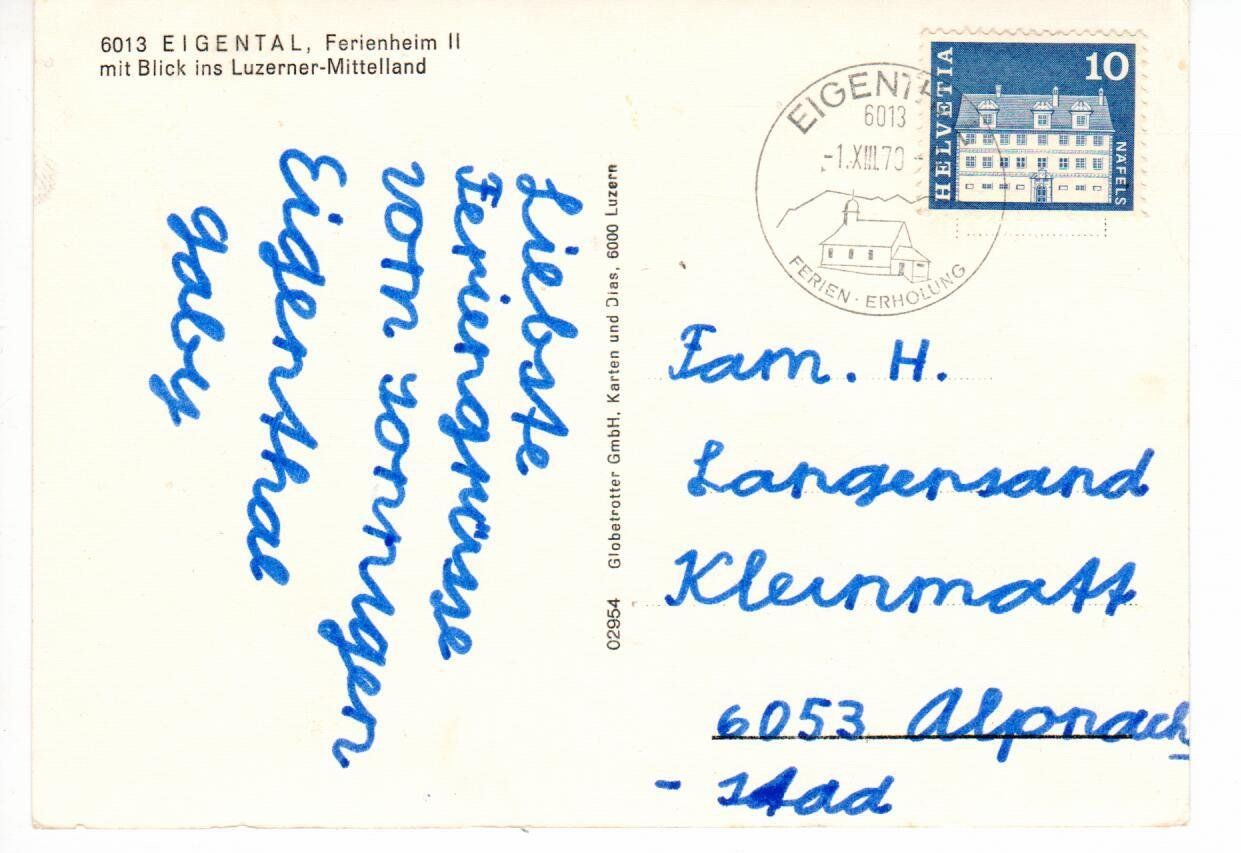 6013 EIGENTAL, Ferienheim II
mit Blick ins Luzerner-Mittelland
Liebste
Feriengrüsse
vom sonnigen
Eigenthal
Gaby
02954 Globetrotter GmbH, Karten und Dias, 6000 Luzern
EIGENTH
6013
FERIEN · ERHOLUNG
HELVETIA
10
NÄFELS
Fam. H.
Langensand
Kleinmatt
6053 Alpnach
- Stad